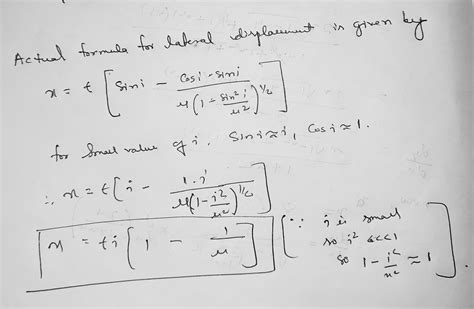 Actual formula for lateral displacement is given by
x = t [ Sin i - Cos i - Sin i / μ(1 - Sin² i / μ²)^1/2 ]
for Small value of i. Sin i ≈ i, Cos i ≈ 1.
∴ x = t [ i - 1·i / μ(1 - i²/μ²)^1/2 ]
x = t i [ 1 - 1/μ ] [ ∵ i is small
so i² <<<1
so 1 - i²/μ² ≈ 1 ].